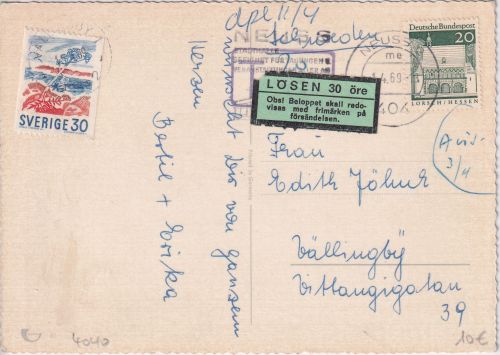 SVERIGE 30
wünscht Dir von ganzem
Herzen
Bertil + Erika
NEUSS
LÖSEN 30 öre
Obs! Beloppet skall redo-
visas med frimärken på
försändelsen.
NEUSS
.4.69
404
20
Deutsche Bundespost
LORSCH / HESSEN
3/4
Frau
Edith
Vällingby
Vittangigatan
39
4040
10€